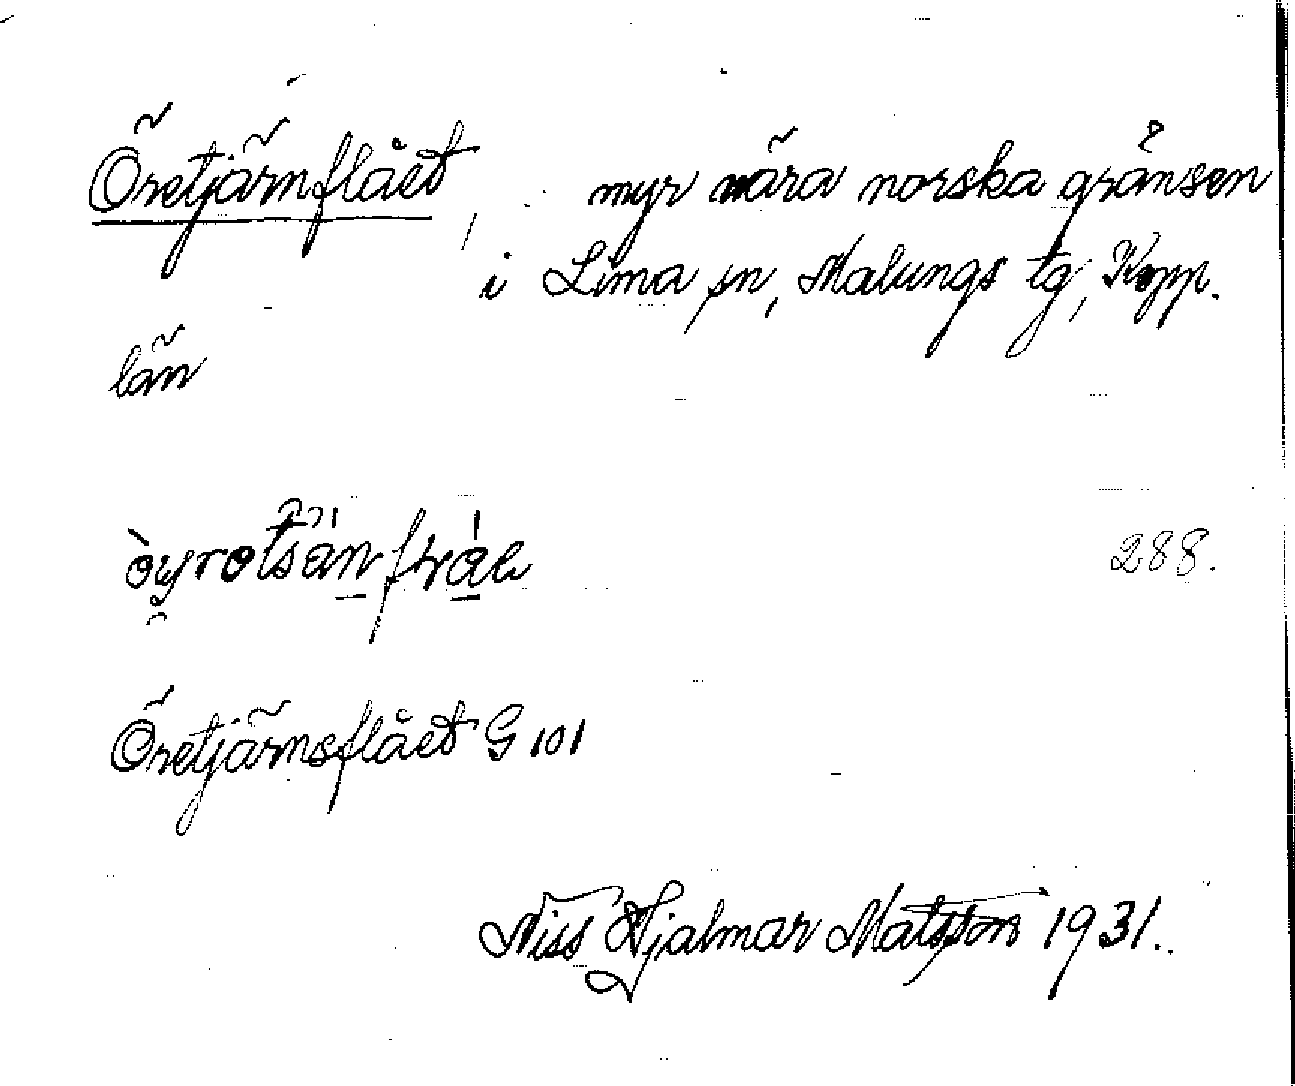 Öretjärnflået, myr nära norska gränsen
i Lima sn, Malungs tg, Kopp.
län
288.
Öretjärnsflået G 101
Niss Hjalmar Matsson 1931.